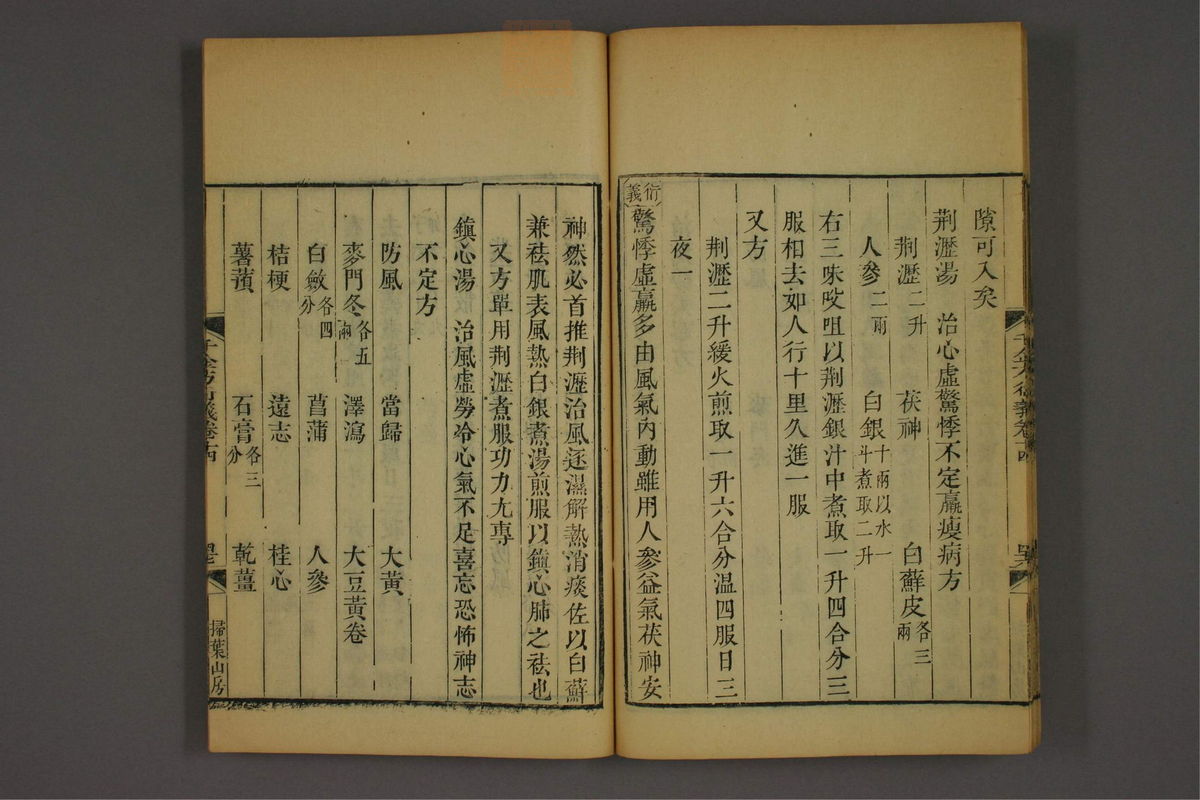 隙可入矣
荆瀝湯　治心虛驚悸不定羸瘦病方
荆瀝二升　茯神　白蘚皮各三兩
人參二兩　白銀十兩以水一斗煮取二升
右三味㕮咀以荆瀝銀汁中煮取一升四合分三
服相去如人行十里久進一服
又方
荆瀝二升緩火煎取一升六合分温四服日三
夜一
衍義驚悸虛羸多由風氣內動雖用人參益氣茯神安
神然必首推荆瀝治風逐濕解熱消痰佐以白蘚
兼祛肌表風熱白銀煮湯煎服以鎮心肺之祛也
又方單用荆瀝煮服功力尤專
鎮心湯　治風虛勞冷心氣不足喜忘恐怖神志
不定方
防風　當歸　大黃
麥門冬各五兩　澤瀉　大豆黃卷
白斂各四分　菖蒲　人參
桔梗　遠志　桂心
薯蕷　石膏各三分　乾薑
千金方衍義卷十四
掃葉山房